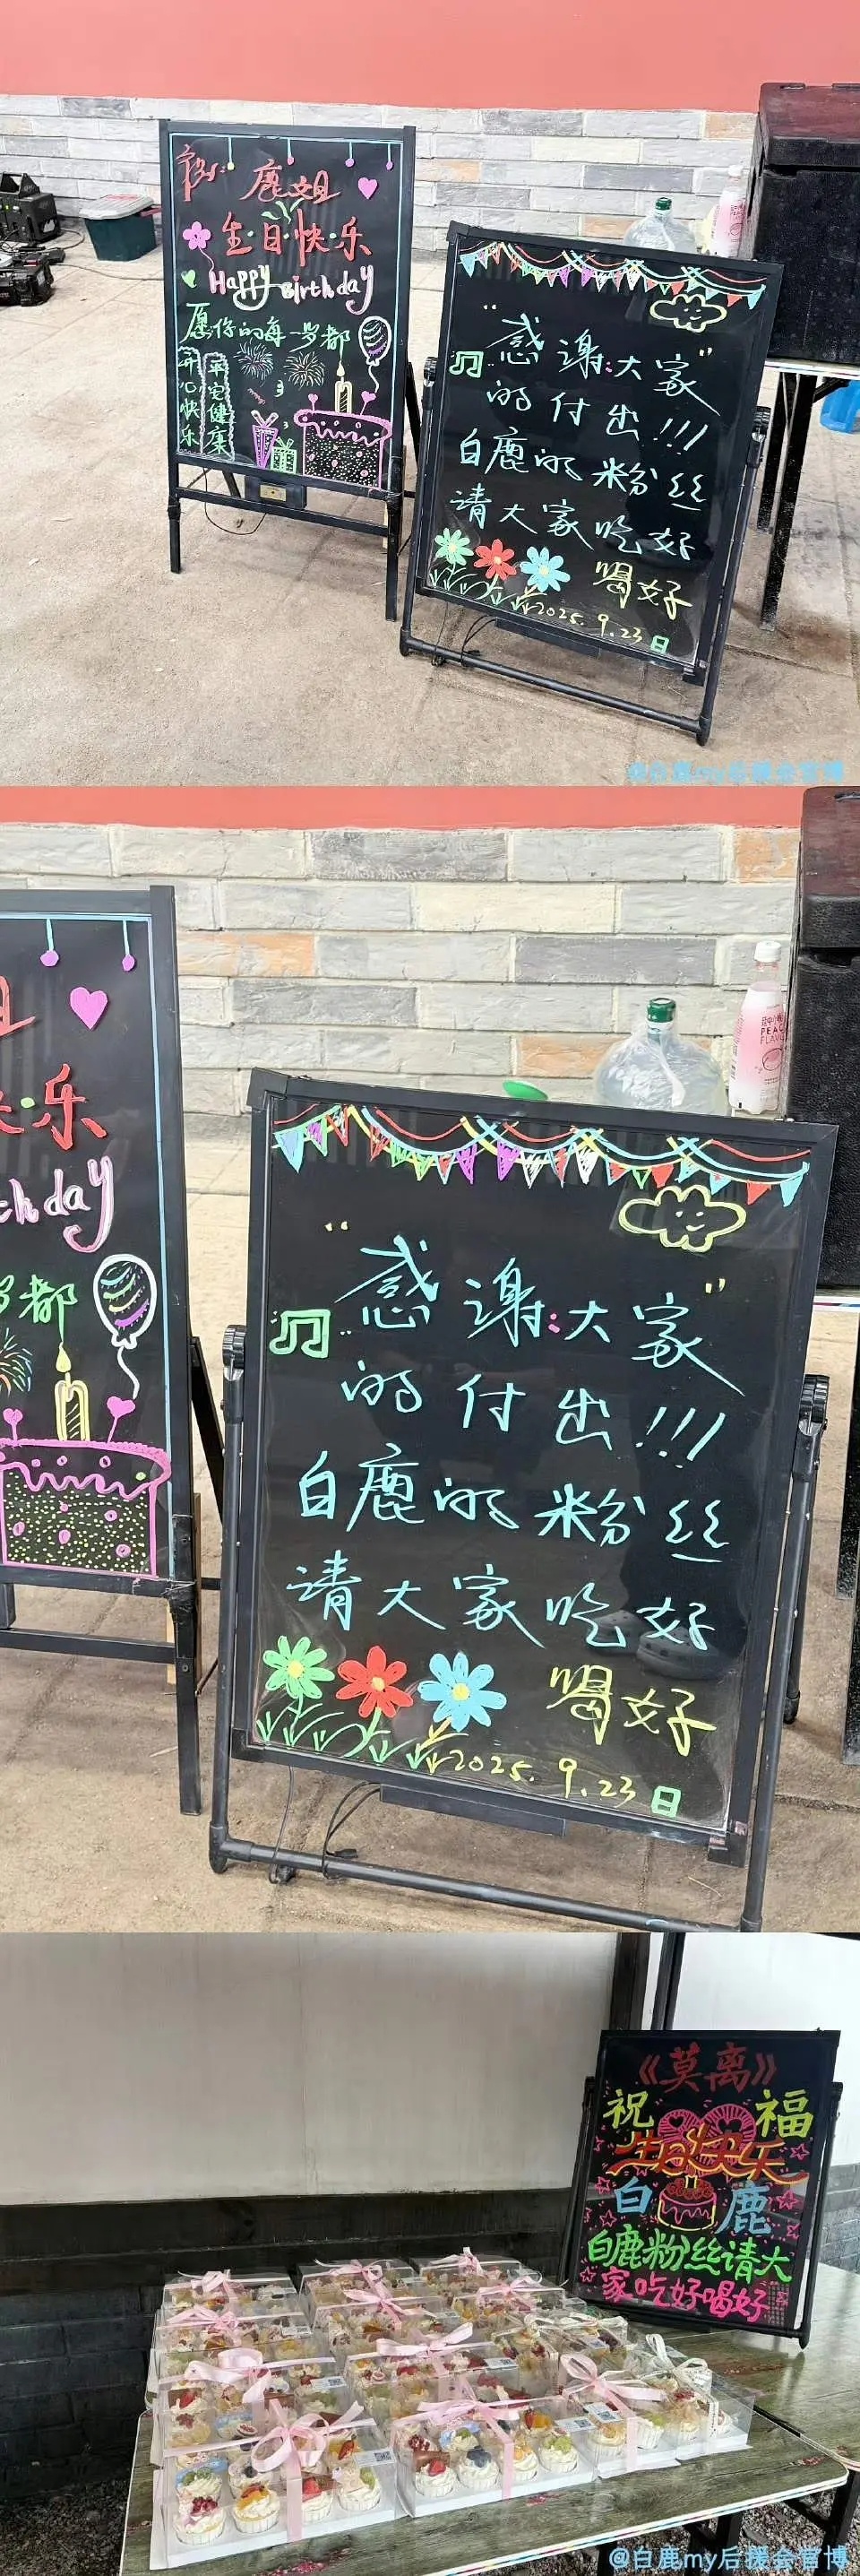 祝:
鹿姐
生·日·快·乐
Happy Birthday
愿你的每一岁都
开心快乐
平安健康
“感谢:大家”
的付出!!!
白鹿的粉丝
请大家吃好
喝好
2025.9.23日
@白鹿my后援会官博
姐
快·乐
thday
岁都
PEAC
FLAV
“感谢:大家”
的付出!!!
白鹿的粉丝
请大家吃好
喝好
2025.9.23日
《莫离》
祝福
生日快乐
白鹿
白鹿粉丝请大
家吃好喝好
@白鹿my后援会官博